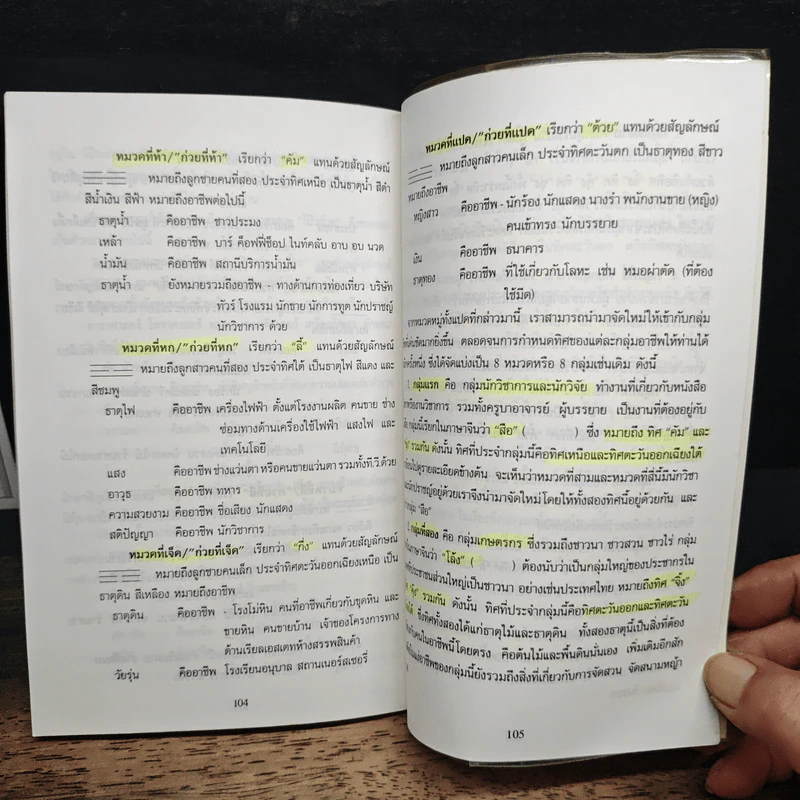 หมวดที่ห้า/"ก่วยที่ห้า" เรียกว่า "คัม" แทนด้วยสัญลักษณ์
หมายถึงลูกชายคนที่สอง ประจำทิศเหนือ เป็นธาตุน้ำ สีดำ
สีน้ำเงิน สีฟ้า หมายถึงอาชีพต่อไปนี้
ธาตุน้ำ คืออาชีพ ชาวประมง
เหล้า คืออาชีพ บาร์ ค็อฟฟี่ช็อป ไนท์คลับ อาบ อบ นวด
น้ำมัน คืออาชีพ สถานีบริการน้ำมัน
ธาตุน้ำ ยังหมายรวมถึงอาชีพ - ทางด้านการท่องเที่ยว บริษัท
ทัวร์ โรงแรม นักขาย นักการทูต นักปราชญ์
นักวิชาการ ด้วย
หมวดที่หก/"ก่วยที่หก" เรียกว่า "ลี้" แทนด้วยสัญลักษณ์
หมายถึงลูกสาวคนที่สอง ประจำทิศใต้ เป็นธาตุไฟ สีแดง และ
สีชมพู
ธาตุไฟ คืออาชีพ เครื่องไฟฟ้า ตั้งแต่โรงงานผลิต คนขาย ช่าง
ซ่อมทางด้านเครื่องใช้ไฟฟ้า แสงไฟ และ
เทคโนโลยี
แสง คืออาชีพ ช่างแว่นตา หรือคนขายแว่นตา รวมทั้งที.วี.ด้วย
อาวุธ คืออาชีพ ทหาร
ความสวยงาม คืออาชีพ ชื่อเสียง นักแสดง
สติปัญญา คืออาชีพ นักวิชาการ
หมวดที่เจ็ด/"ก่วยที่เจ็ด" เรียกว่า "กึ่ง" แทนด้วยสัญลักษณ์
หมายถึงลูกชายคนเล็ก ประจำทิศตะวันออกเฉียงเหนือ เป็น
ธาตุดิน สีเหลือง หมายถึงอาชีพ
ธาตุดิน คืออาชีพ - โรงโม่หิน คนที่อาชีพเกี่ยวกับขุดหิน และ
ขายหิน คนขายบ้าน เจ้าของโครงการทาง
ด้านเรียลเอสเตทห้างสรรพสินค้า
วัยรุ่น คืออาชีพ โรงเรียนอนุบาล สถานเนอร์สเซอรี่
104
หมวดที่แปด/"ก่วยที่แปด" เรียกว่า "ต้วย" แทนด้วยสัญลักษณ์
หมายถึงลูกสาวคนเล็ก ประจำทิศตะวันตก เป็นธาตุทอง สีขาว
หมายถึงอาชีพ
หญิงสาว คืออาชีพ - นักร้อง นักแสดง นางรำ พนักงานขาย (หญิง)
คนเข้าทรง นักบรรยาย
เงิน คืออาชีพ ธนาคาร
ธาตุทอง คืออาชีพ ที่ใช้เกี่ยวกับโลหะ เช่น หมอผ่าตัด (ที่ต้อง
ใช้มีด)
จากหมวดหมู่ทั้งแปดที่กล่าวมานี้ เราสามารถนำมาจัดใหม่ให้เข้ากับกลุ่ม
เด่นชัดมากยิ่งขึ้น ตลอดจนการกำหนดทิศของแต่ละกลุ่มอาชีพให้ท่านได้
ครั้งหนึ่ง ซึ่งได้จัดแบ่งเป็น 8 หมวดหรือ 8 กลุ่มเช่นเดิม ดังนี้
1. กลุ่มแรก คือ กลุ่มนักวิชาการและนักวิจัย ทำงานที่เกี่ยวกับหนังสือ
งานวิชาการ รวมทั้งครูบาอาจารย์ ผู้บรรยาย เป็นงานที่ต้องอยู่กับ
กลุ่มนี้เรียกในภาษาจีนว่า "สือ" ( ) ซึ่ง หมายถึง ทิศ "คัม" และ
รวมกัน ดังนั้น ทิศที่ประจำกลุ่มนี้คือทิศเหนือและทิศตะวันออกเฉียงใต้
ไปดูรายละเอียดข้างต้น จะเห็นว่าหมวดที่สามและหมวดที่สี่นี้มีนักวิชา
นักปราชญ์อยู่ด้วยเราจึงนำมาจัดใหม่โดยให้ทั้งสองทิศนี้อยู่ด้วยกัน และ
กลุ่ม "สือ"
กลุ่มที่สอง คือ กลุ่มเกษตรกร ซึ่งรวมถึงชาวนา ชาวสวน ชาวไร่ กลุ่ม
ในภาษาจีนว่า "โล้ง" ( ) ต้องนับว่าเป็นกลุ่มใหญ่ของประชากรใน
ประชาชนส่วนใหญ่เป็นชาวนา อย่างเช่นประเทศไทย หมายถึงทิศ "จิ้ง"
รวมกัน ดังนั้น ทิศที่ประจำกลุ่มนี้คือทิศตะวันออกและทิศตะวัน
ซึ่งทิศทั้งสองได้แก่ธาตุไม้และธาตุดิน ทั้งสองธาตุนี้เป็นสิ่งที่ต้อง
กับคนในอาชีพนี้โดยตรง คือต้นไม้และพื้นดินนั่นเอง เพิ่มเติมอีกสัก
อาชีพของกลุ่มนี้ยังรวมถึงสิ่งที่เกี่ยวกับการจัดสวน จัดสนามหญ้า
105